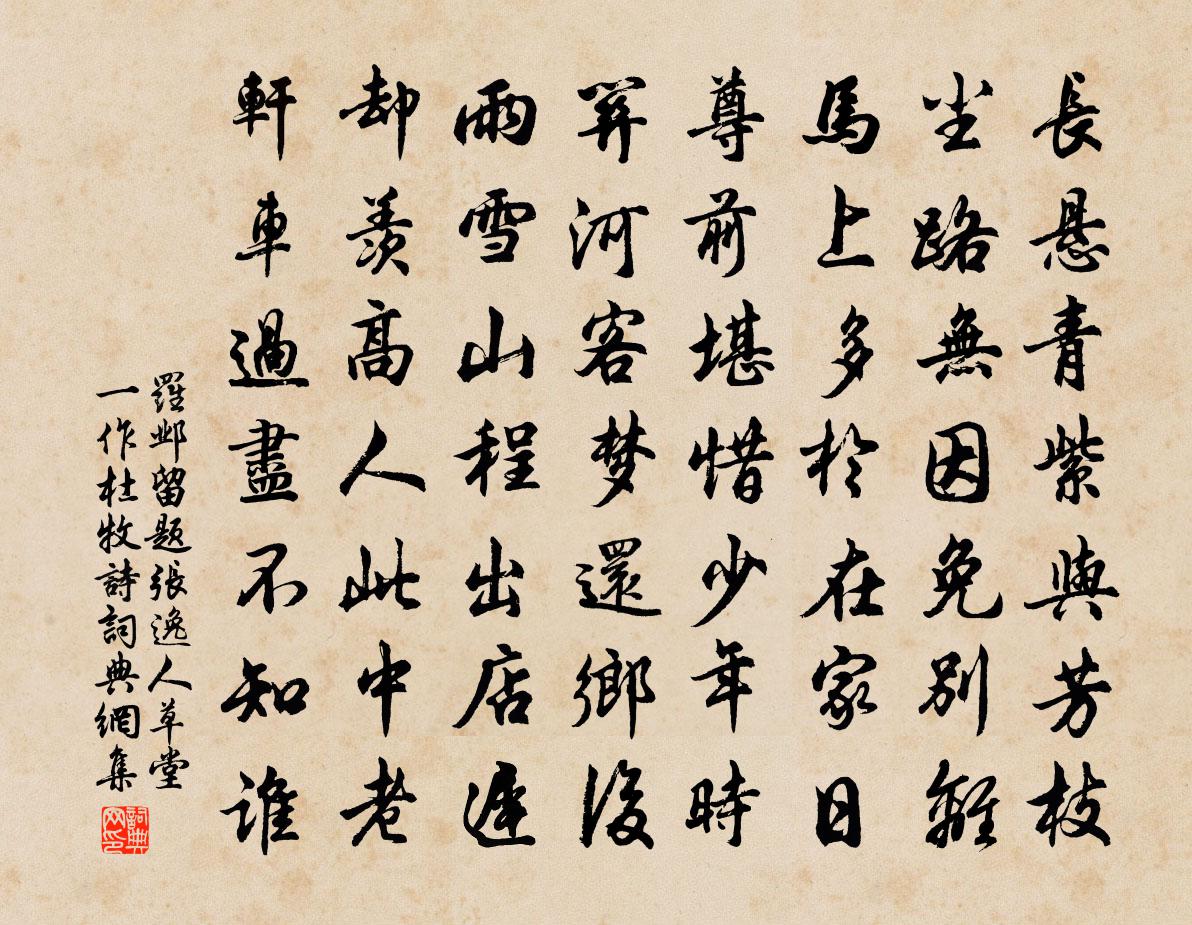 長悬青紫與芳枝
尘路無因免别離
馬上多於在家日
尊前堪惜少年時
關河客梦還鄉後
雨雪山程出店遲
却羨高人此中老
軒車過盡不知誰
羅邺留题張逸人草堂
一作杜牧詩詞典網集
詞典
网印